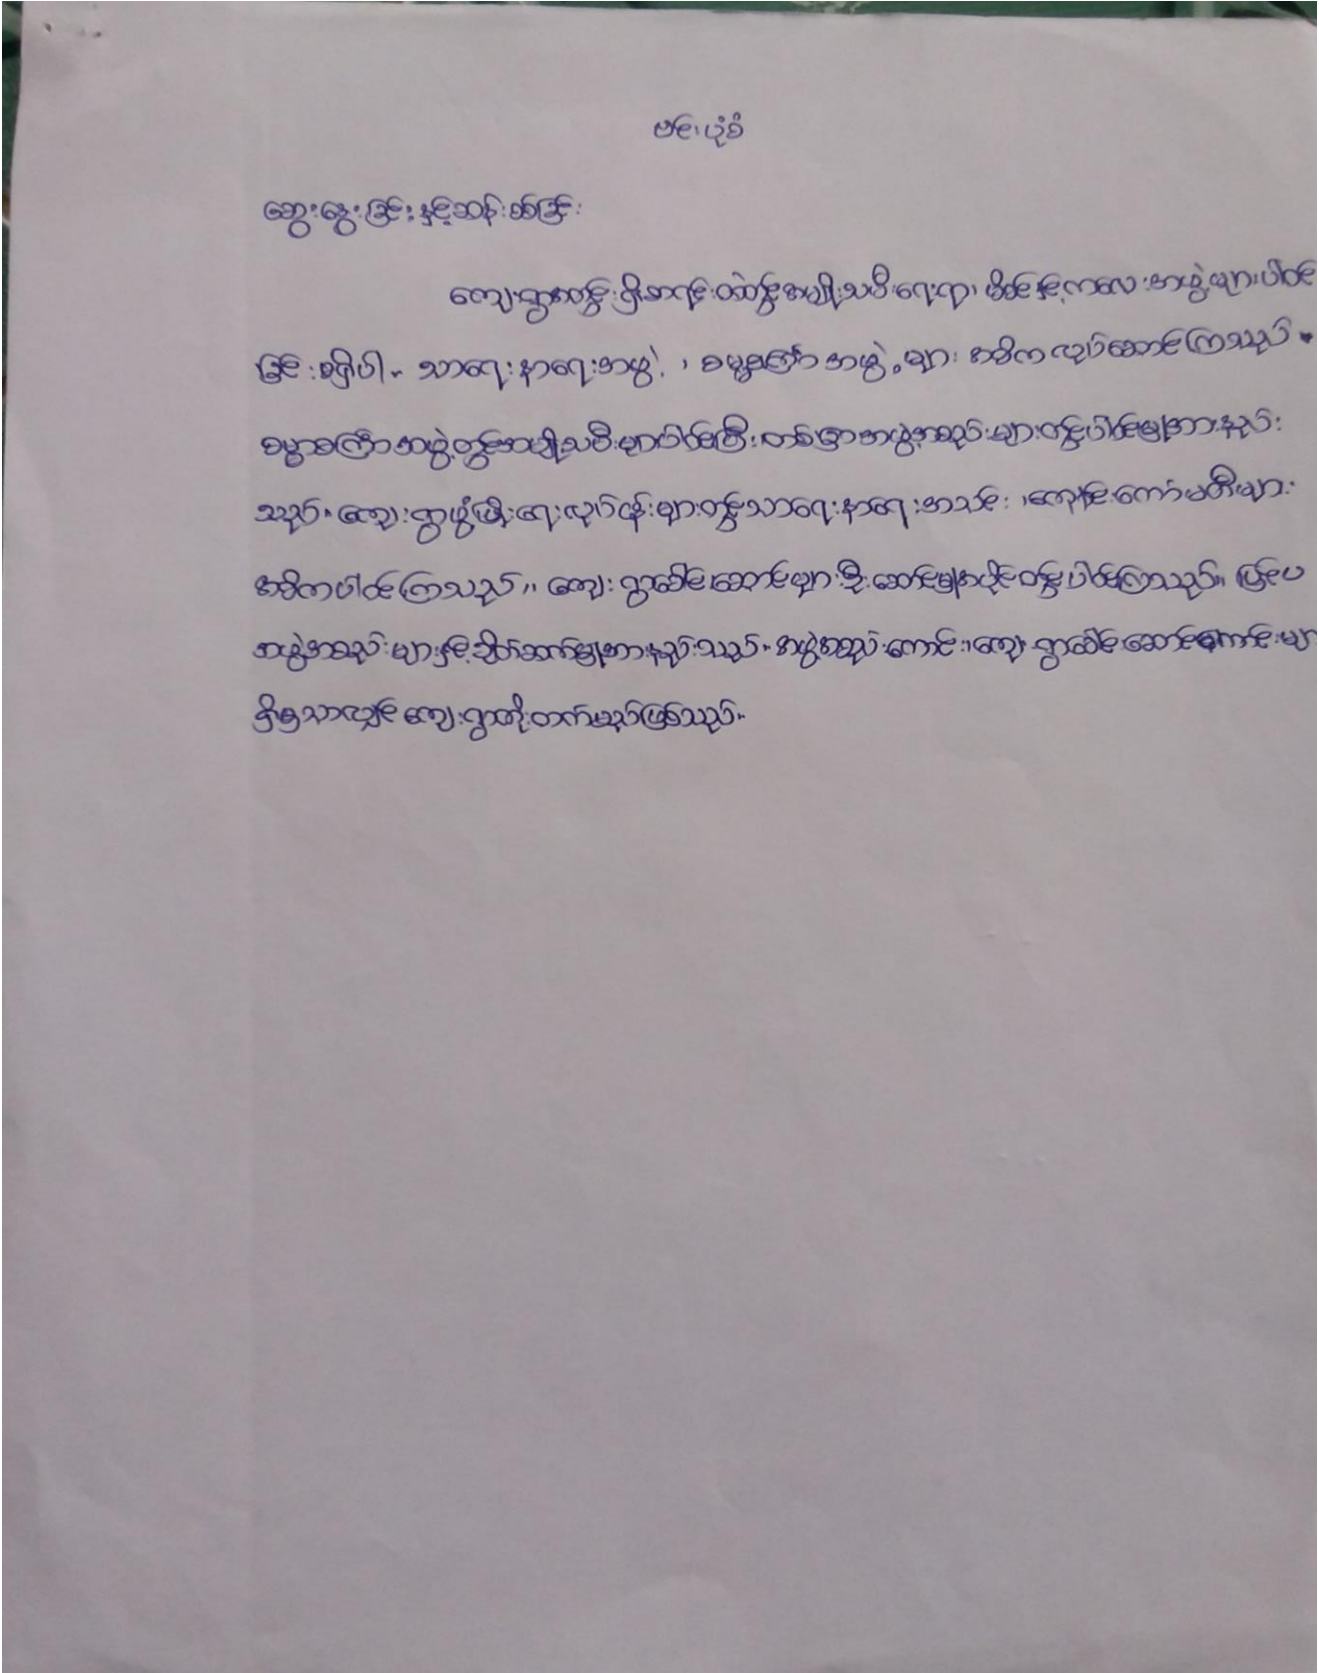 ဗင်းပုံစံ
ဆွေးနွေးခြင်းနှင့်ဆန်းစစ်ခြင်း
ကျေးရွာအတွင်းရှိစာရင်းဝထဲတွင်အမျိုးသမီးရေးရာ၊ မိခင်နှင့်ကလေးအဖွဲ့များပါဝင်
ခြင်းမရှိပါ။ သာရေးနာရေးအဖွဲ့၊ စမျှစကြာ်အဖွဲ့များ အဓိကလုပ်ဆောင်ကြသည်။
စမျှာစကြာ်အဖွဲ့တွင်အမျိုးသမီးများပါဝင်ပြီးတစ်ခြားအဖွဲ့အစည်းများတွင်ပါဝင်မှုအားနည်း
သည်။ကျေးရွာဖွံ့ဖြိုးရေးလုပ်ငန်းများတွင်သာရေးနာရေးအသင်း၊ကျောင်းကော်မတီများ
အဓိကပါဝင်ကြသည်။ ကျေးရွာခေါင်းဆောင်များဦးဆောင်မှုအပိုင်းတွင်ပါဝင်ကြသည်။ ပြင်ပ
အဖွဲ့အစည်းများနှင့်ချိတ်ဆက်မှုအားနည်းသည်။အဖွဲ့အစည်းကောင်း၊ကျေးရွာခေါင်းဆောင်ကောင်းများ
ရှိမှသာလျှင်ကျေးရွာတိုးတက်မည်ဖြစ်သည်။